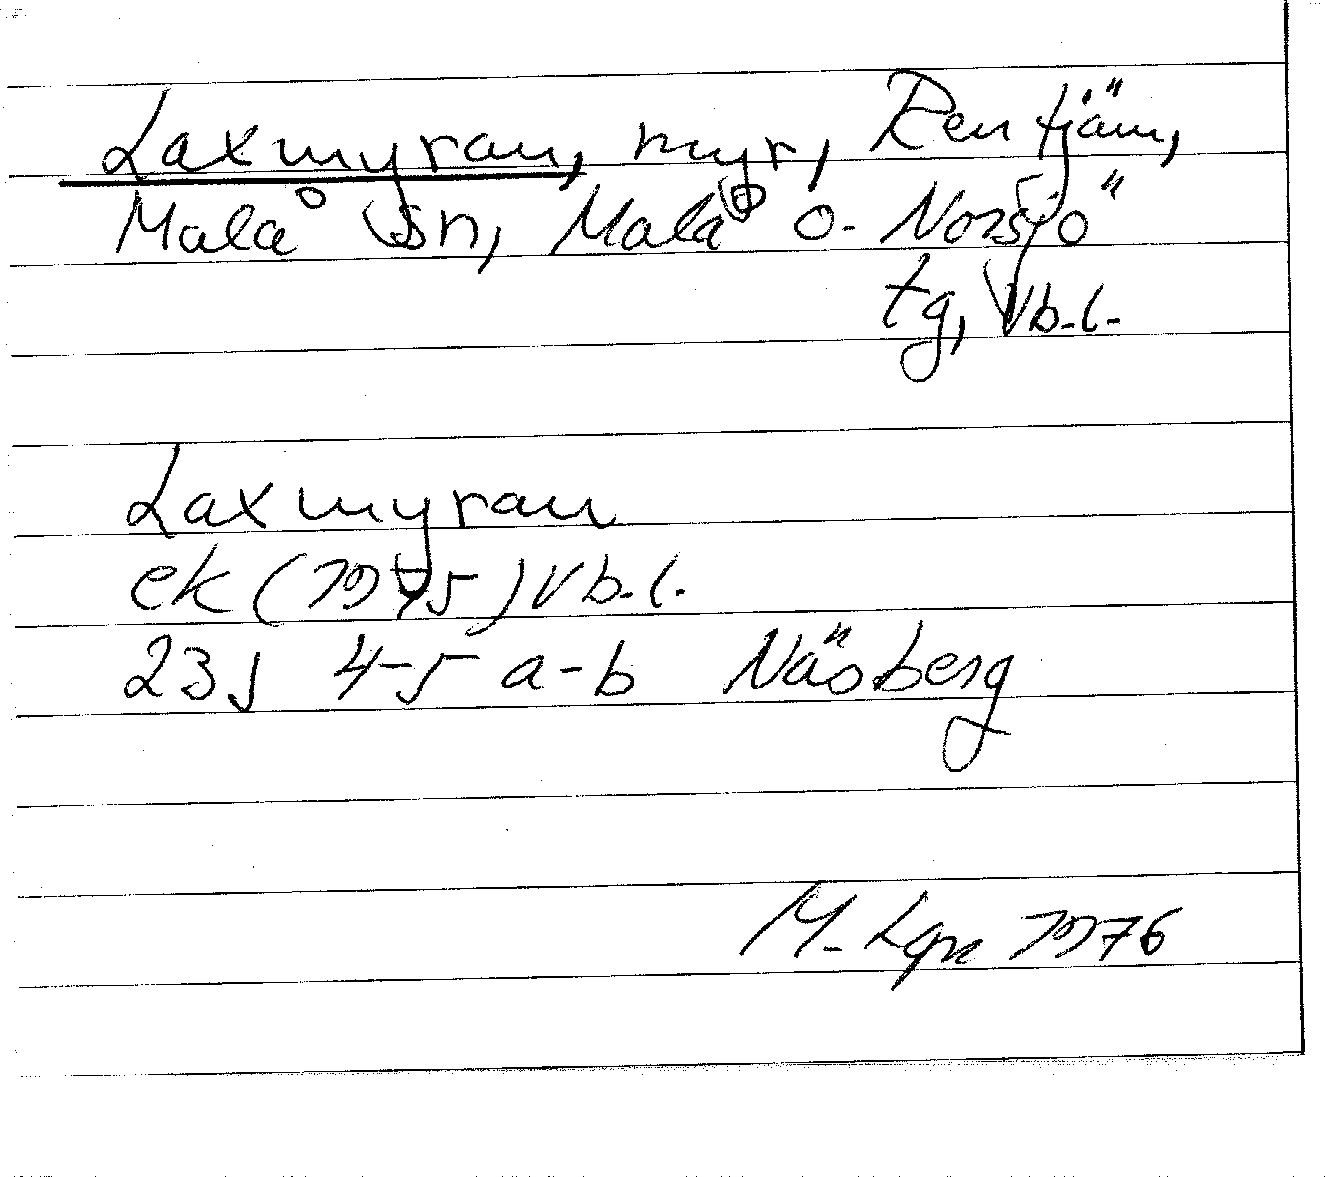 Laxmyran, myr, Rentjäm,
Malå sn, Malå o. Norsjö
tg, Vb.l.
Laxmyran
ek (1975) Vb.l.
23J 4-5 a-b Näsberg
M. Lgn 1976